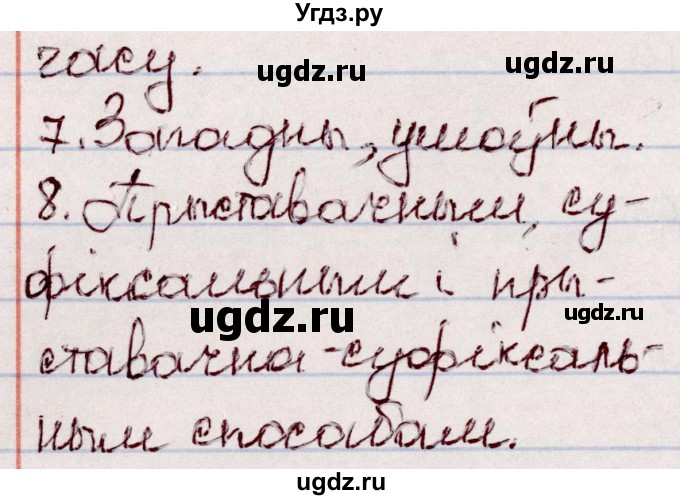 Угдз.ру
часу.
ugdz.ru ugdz.ru
7. Загадны, умоўны.
8. Прыставачным, су-
фіксальным і пры-
ugdz.ru
ставачна-суфіксаль-
ным спосабам.
ugdz.ru
ugdz.ru